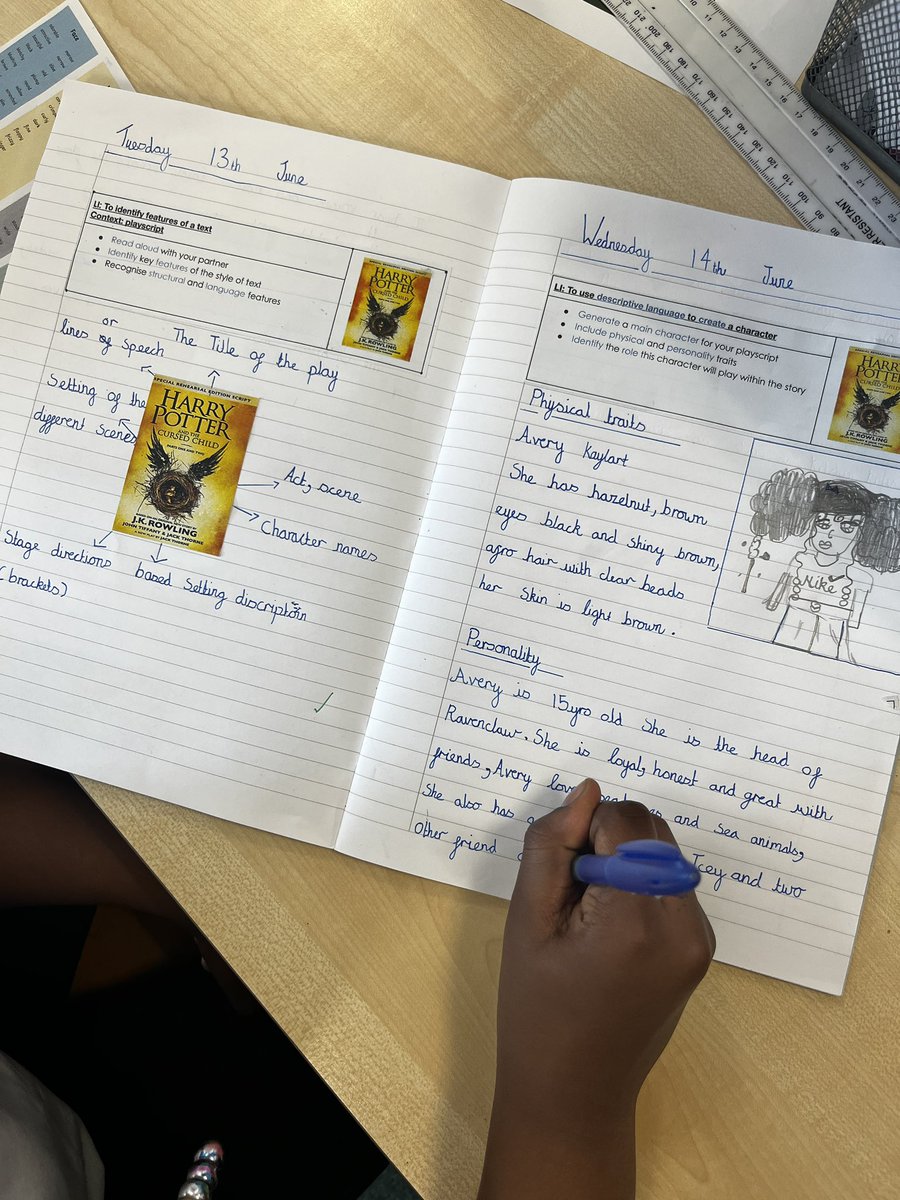 Tuesday 13th June
LI: To identify features of a text
Context: playscript
Read aloud with your partner
Identify key features of the style of text
Recognise structural and language features
SPECIAL REHEARSAL EDITION SCRIPT
HARRY
POTTER
AND THE
CURSED CHILD
J.K.ROWLING
or
lines of speech
The Title of the play
Setting of the
different Scenes
SPECIAL REHEARSAL EDITION SCRIPT
HARRY
POTTER
AND THE
CURSED CHILD
PARTS ONE AND TWO
J.K.ROWLING
JOHN TIFFANY & JACK THORNE
A NEW PLAY BY JACK THORNE
Act, scene
Character names
Stage directions
(brackets)
based Setting discription
Wednesday 14th June
LI: To use descriptive language to create a character
Generate a main character for your playscript
Include physical and personality traits
Identify the role this character will play within the story
HARRY
POTTER
AND THE
CURSED CHILD
J.K.ROWLING
Physical traits
Avery Kaylart
She has hazelnut, brown
eyes black and shiny brown,
afro hair with clear beads
her Skin is light brown.
Nike
Personality
Avery is 15yrs old She is the head of
Ravenclaw. She is loyal, honest and great with
friends, Avery and sea animals,
She also has Icey and two
Other friend
RESISTANT